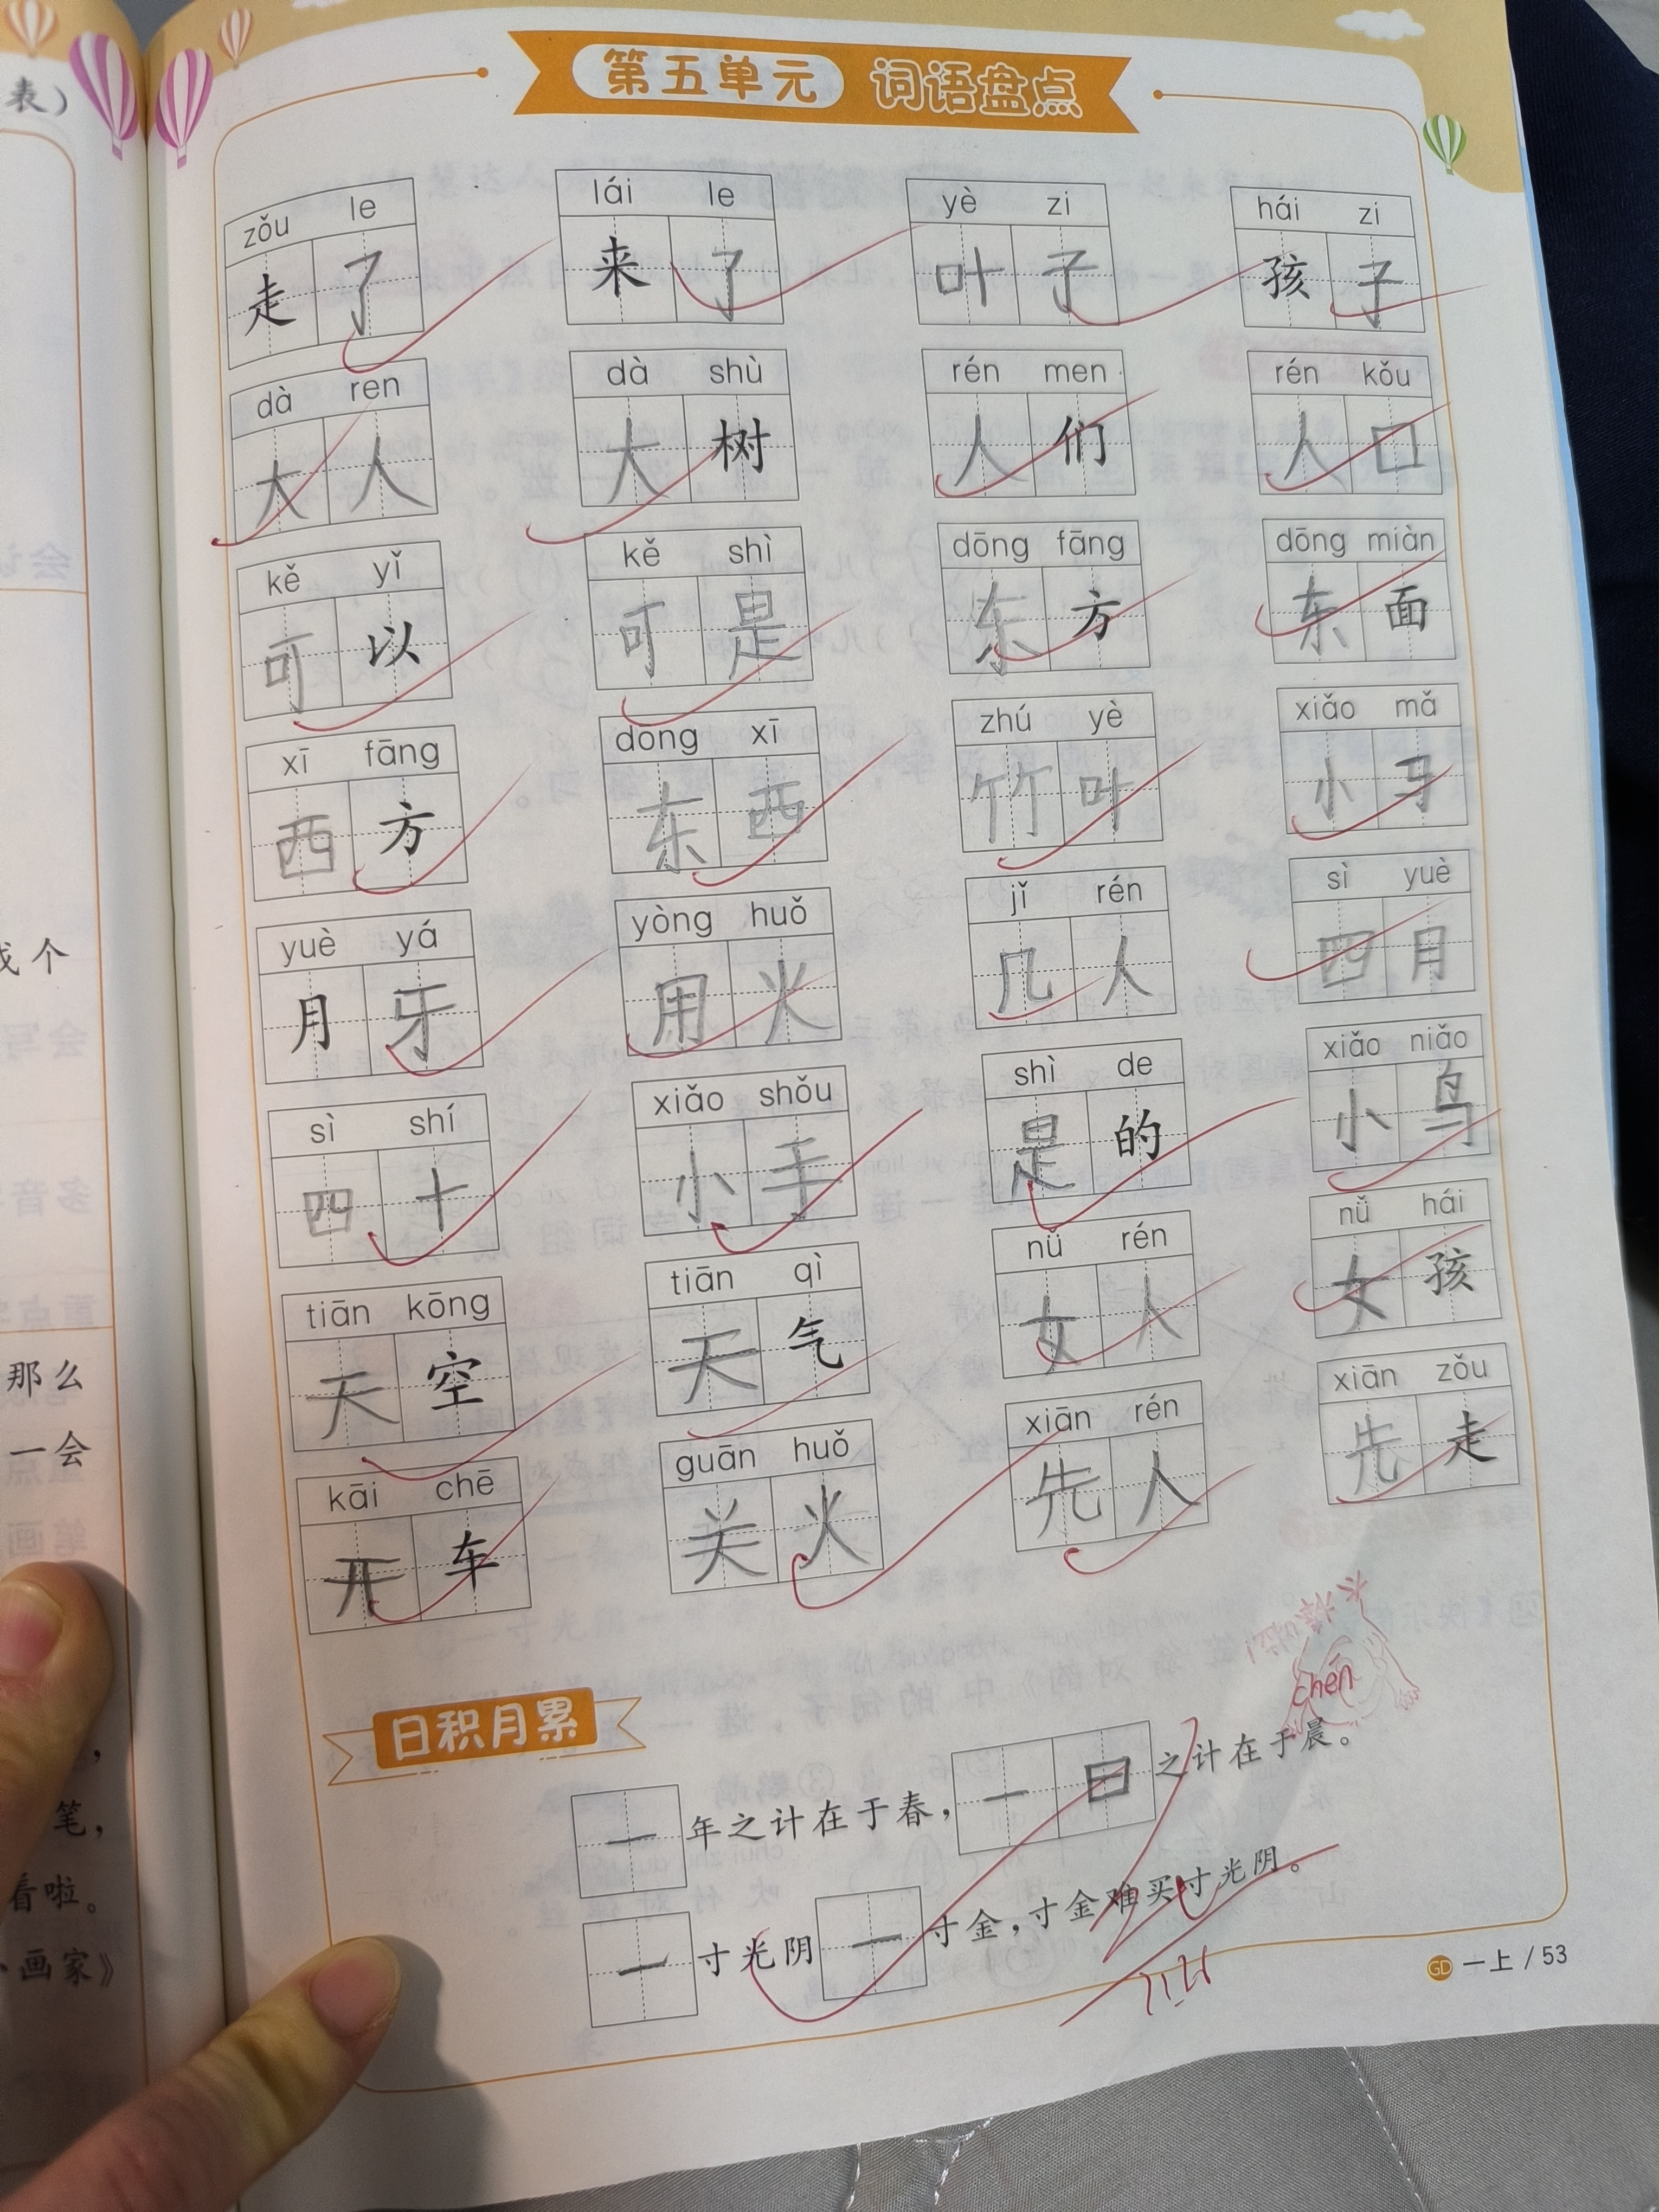 表）
第五单元 词语盘点
zǒu le lái le yè zi hái zi
走了 来了 叶子 孩子
dà ren dà shù rén men rén kǒu
大人 大树 人们 人口
kě yǐ kě shì dōng fāng dōng miàn
可以 可是 东方 东面
xī fāng dōng xī zhú yè xiǎo mǎ
西方 东西 竹叶 小马
yuè yá yòng huǒ jǐ rén sì yuè
月牙 用火 几人 四月
sì shí xiǎo shǒu shì de xiǎo niǎo
四十 小手 是的 小鸟
tiān kōng tiān qì nǚ rén nǚ hái
天空 天气 女人 女孩
kāi chē guān huǒ xiān rén xiān zǒu
开车 关火 先人 先走
chén
日积月累
一年之计在于春，一日之计在于晨。
一寸光阴一寸金，寸金难买寸光阴。
GD 一上 / 53
个
那么
一会
笔，
看啦。
画家》